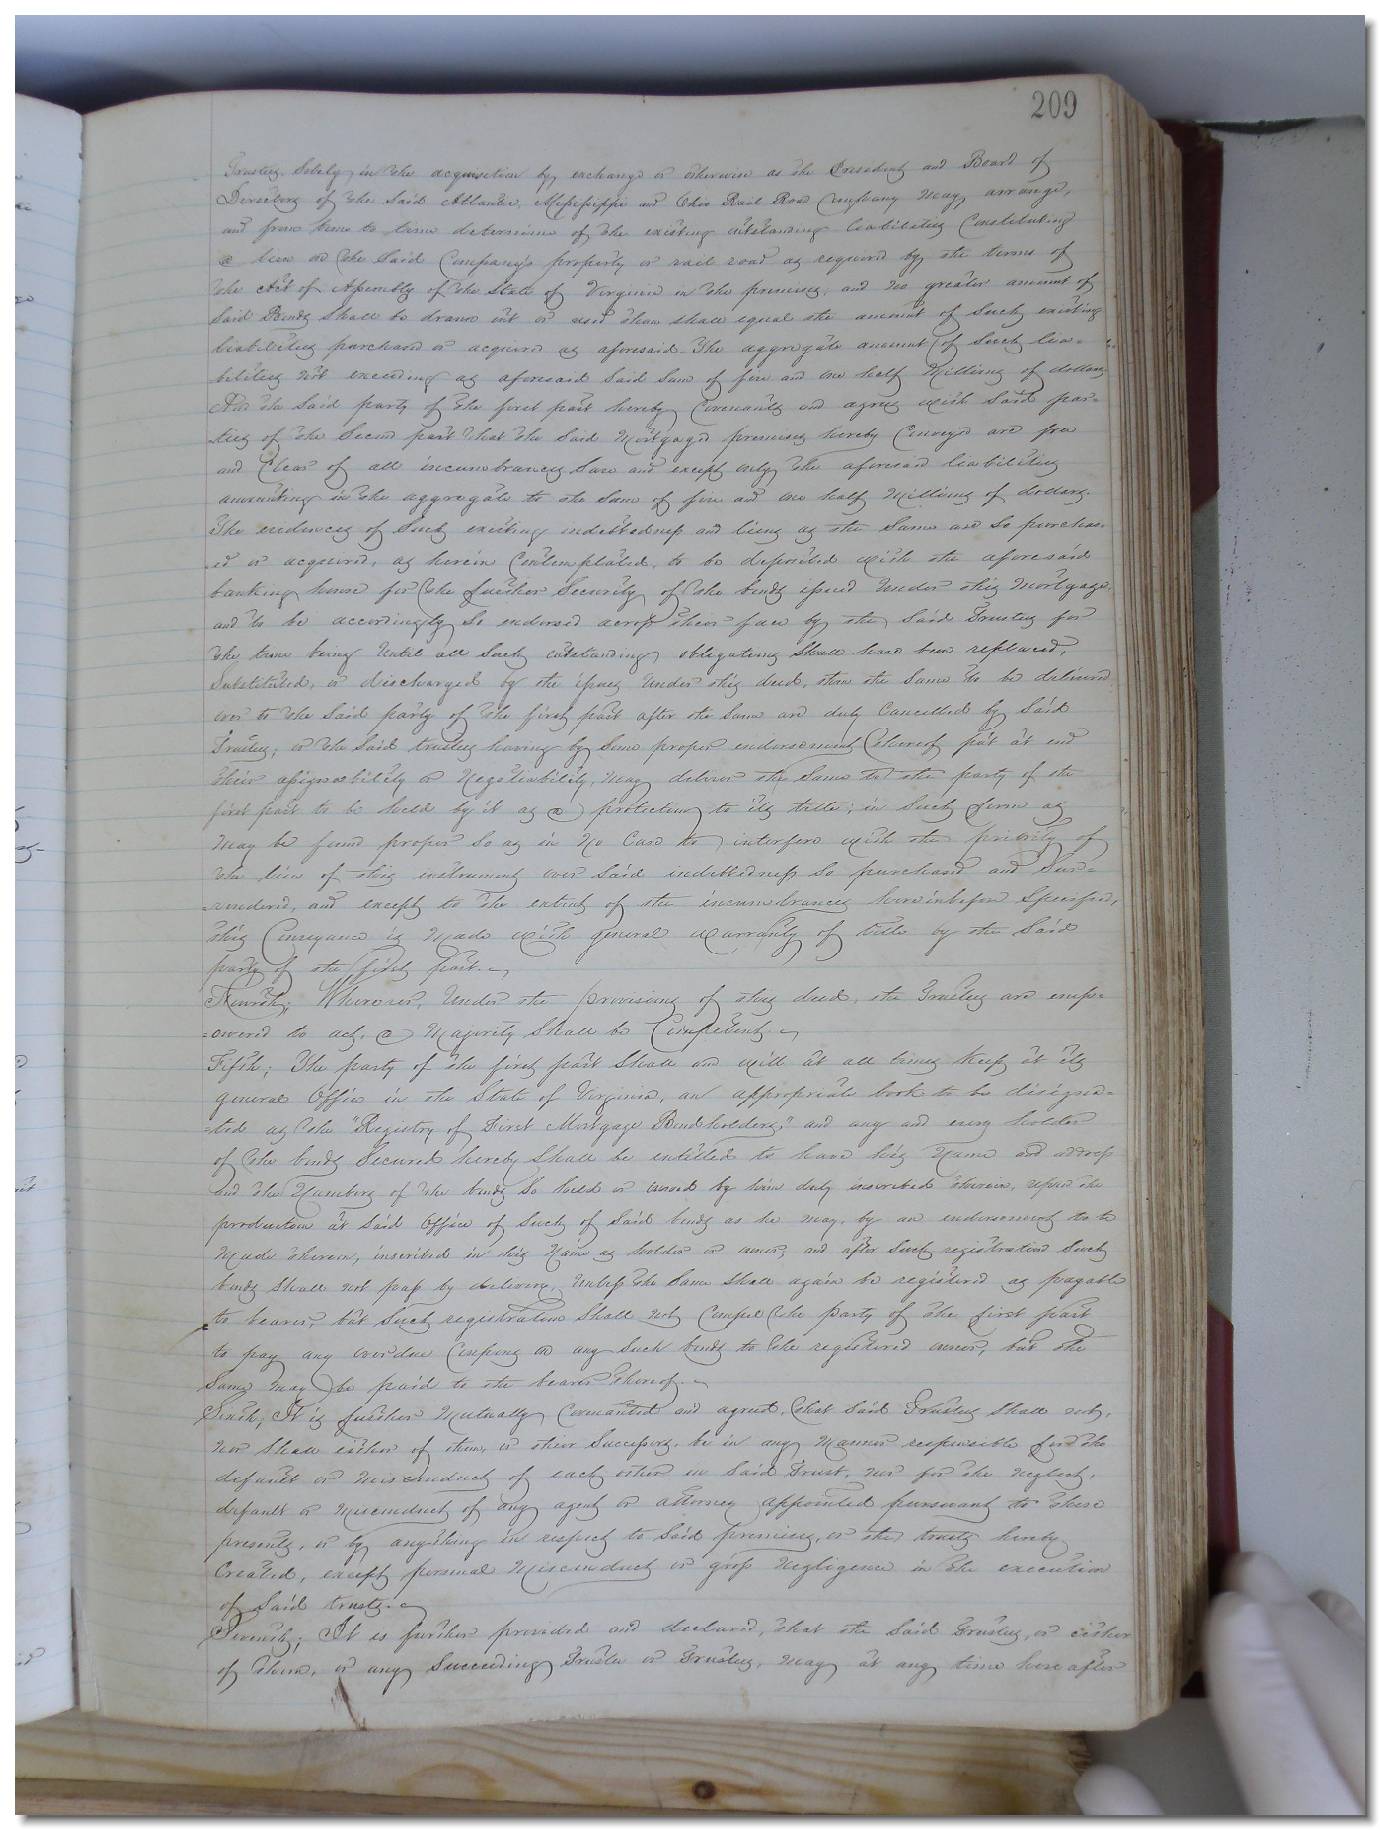 209
Trustees solely in the acquisition by exchange or otherwise as the President and Board of
Directors of the said Atlantic, Mississippi and Ohio Rail Road Company may arrange,
and from time to time determine of the existing outstanding liabilities Constituting
a lien on the said Company's property or rail road as required by the terms of
the Act of Assembly of the State of Virginia in the premises; and no greater amount of
said Bonds shall be drawn out or used than shall equal the amount of such existing
liabilities purchased or acquired as aforesaid The aggregate amount of such lia=
bilities not exceeding as aforesaid said sum of five and one half Millions of dollars
And the said party of the first part hereby Covenants and agrees with said par=
ties of the Second part that the said Mortgaged premises hereby Conveyed are free
and Clear of all incumbrances Save and except only the aforesaid liabilities
amounting in the aggregate to the Sum of five and one half Millions of dollars.
The evidences of such existing indebtedness and liens as the same are so purchas=
ed or acquired, as herein Contemplated, to be deposited with the aforesaid
banking house for the further Security of the bonds issued under this Mortgage,
and to be accordingly so endorsed across their face by the said Trustees for
the time being Until all such outstanding obligations shall have been replaced,
Substituted, or discharged by the issues under this deed, then the same to be delivered
over to the said party of the first part after the same are duly Cancelled by said
Trustees; or the said trustees having by some proper endorsement thereof put at end
their assignability or Negotiability, may deliver the same to the party of the
first part to be held by it as a protection to its title; in such form as
may be found proper so as in no Case to interfere with the priority of
the lien of this instrument over said indebtedness so purchased and Sur=
=rendered, and except to the extent of the incumbrances hereinbefore Specified,
this Conveyance is Made with general warranty of title by the said
party of the first part.
Fourth; Wherever, Under the provisions of this deed, the Trustees are emp=
=owered to act, a Majority shall be Competent.
Fifth; The party of the first part shall and will at all times Keep at its
general Office in the State of Virginia, an appropriate book to be designa=
=ted as the "Registry of First Mortgage Bondholders," and any and every holder
of the bonds Secured hereby shall be entitled to have his Name and address
and the Numbers of the bonds so held or owned by him duly inscribed therein, upon the
production at said Office of such of said bonds as he may, by an endorsement to be
Made thereon, inscribed in his Name as holder or owner; and after such registration such
bonds shall not pass by delivery, Unless the same shall again be registered as payable
to bearer, but such registration shall not Compel the party of the first part
to pay any overdue Coupons on any such bonds to the registered owner, but the
same may be paid to the bearer thereof.
Sixth; It is further Mutually Covenanted and agreed, that said Trustees shall not,
nor shall either of them, or their Successors, be in any Manner responsible for the
default or misconduct of each other in said Trust, nor for the neglect,
default or Misconduct of any agent or attorney appointed pursuant to these
presents, or by anything in respect to said premises, or the trusts hereby
Created, except personal Misconduct or gross Negligence in the execution
of said trusts.
Seventh; It is further provided and declared, that the said Trustees, or either
of them, or any Succeeding Trustee or Trustees, may at any time hereafter